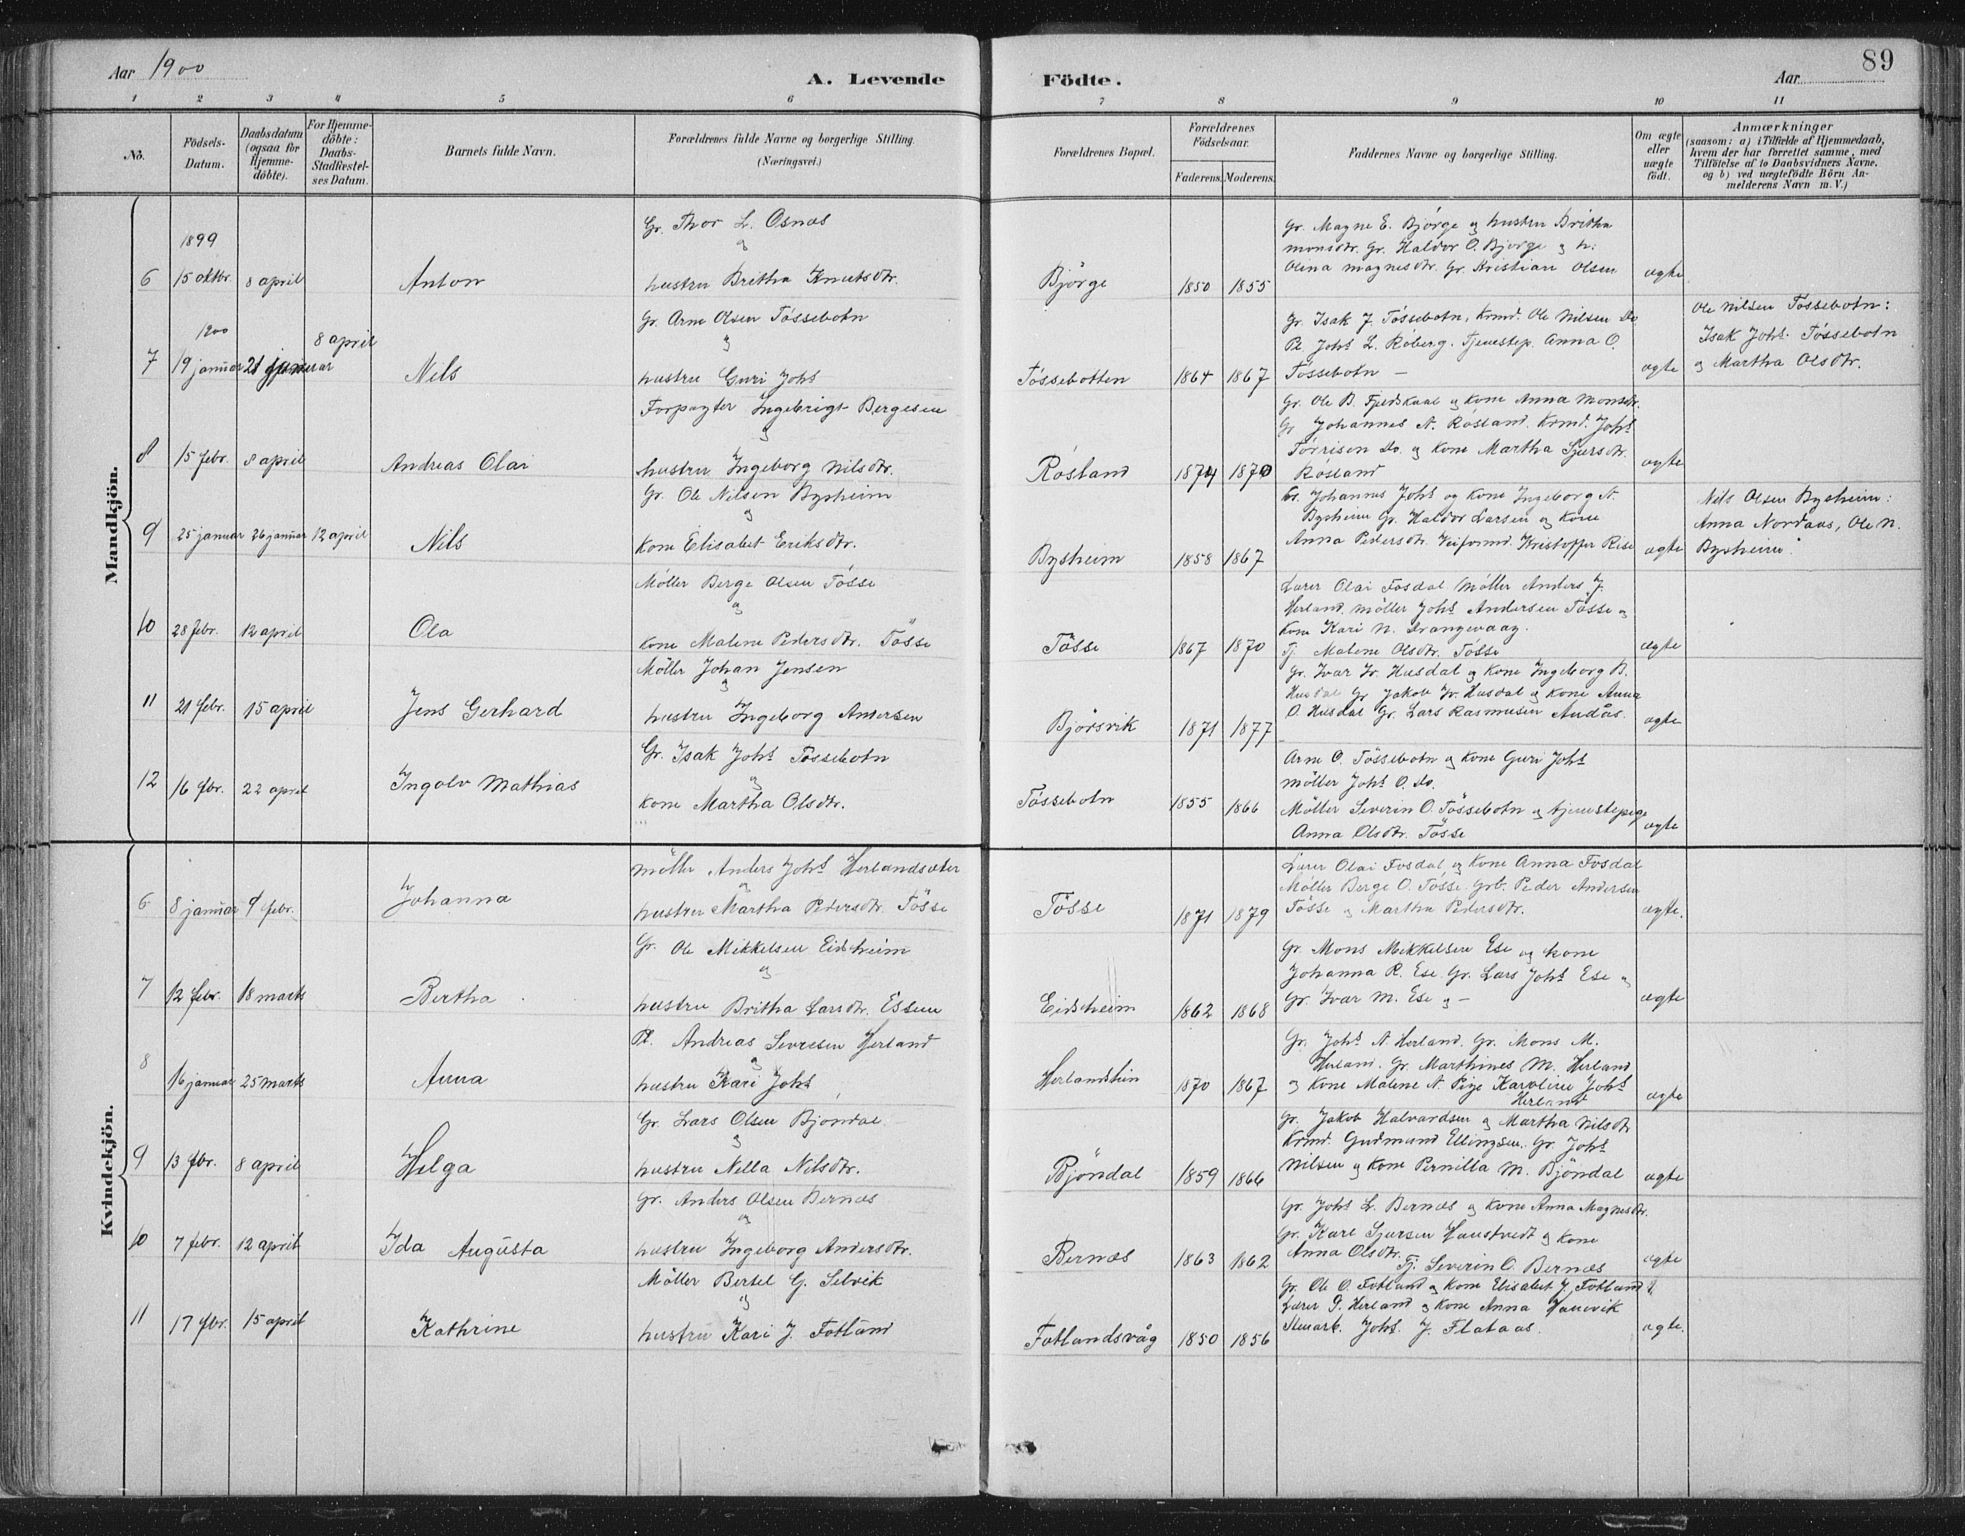 Aar 1900
A. Levende
Födte.
Aar
89
1 2 3 4 5 6 7 8 9 10 11
No.
Födsels-Datum.
Daabsdatum (ogsaa for Hjemme-döbte).
For Hjemme-döbte: Daabs-Stadfæstel-ses Datum.
Barnets fulde Navn.
Forældrenes fulde Navne og borgerlige Stilling.
(Næringsvei.)
Forældrenes Bopæl.
Forældrenes Födselsaar.
Faderens. Moderens.
Faddernes Navne og borgerlige Stilling.
Om ægte eller uægte födt.
Anmærkninger
(saasom: a) i Tilfælde af Hjemmedaab, hvem der har forrettet samme, med Tilföielse af to Daabsvidners Navne. og b) ved uægtefödte Börn An-melderens Navn m. V.)
Mandkjön.
1899
6 15 oktbr. 8 april Anton
Gr. Thor L. Osnæs
og
hustru Britha Knutsdtr.
Bjørge 1850 1855
Gr. Magne E. Bjørge og hustru Britha
monsdtr. Gr. Haldor O. Bjørge og h:
Olina magnesdtr. Gr. Kristian Olsen
ægte
1900
7 19 januar 21 januar 8 april Nils
Gr. Arne Olsen Tössebotn
og
hustru Guri Johs
Tössebotten 1864 1867
Gr. Isak J. Tössebotn, Krmd. Ole Nilsen Do
Pl. Johs L. Röberg. Tjenestep. Anna O.
Tössebotn —
ægte
Ole Nilsen Tössebotn:
Isak Johs. Tössebotn
og Martha Olsdtr.
8 15 febr. 8 april Andreas Olai
Forpagter Ingebrigt Bergesen
og
hustru Ingeborg Nilsdtr.
Rösland 1874 1870
Gr. Ole B. Fjeldskaal og kone Anna Monsdtr.
Gr Johannes N. Rösland. Krmd. Johs
Törrisen Do. og kone Martha Sjursdtr
Rösland
ægte
9 25 januar 26 januar 12 april Nils
Gr. Ole Nilsen Bysheim
og
kone Elisabet Eriksdtr.
Bysheim 1858 1867
Gr. Johannes Johs og kone Ingeborg N.
Bysheim Gr. Haldor Larsen og kone
Anna Pedersdtr. Veiformd. Kristoffer Rise
ægte
Nils Olsen Bysheim:
Anna Nordaas, Ole N.
Bysheim.
10 28 febr. 12 april Ola
Möller Berge Olsen Tösse
og
kone Malene Pedersdtr. Tösse
Tösse 1867 1870
Lærer Olai Fosdal Möller Anders J.
Herland. möller Johs Andersen Tösse og
kone Kari N. Drangevaag.
Tj. Malene Olsdtr. Tösse
ægte
11 21 febr. 15 april Jens Gerhard
Möller Johan Jensen
og
hustru Ingeborg Andersen
Bjørsvik 1871 1877
Gr. Ivar Iv. Husdal og kone Ingeborg B.
Husdal Gr. Jakob Iv. Husdal og kone Anna
O. Husdal Gr. Lars Rasmusen Andås.
ægte
12 16 fbr. 22 april Ingolv Mathias
Gr. Isak Johs Tössebotn
og
kone Martha Olsdtr.
Tössebotn 1855 1866
Arne O. Tössebotn og kone Guri Johs
möller Johs O. Do.
Möller Severin O. Tössebotn og tjenestepige
Anna Olsdtr. Tösse
ægte
Kvindekjön.
6 8 januar 9 febr. Johanna
möller Anders Johs Herlandsæter
og
hustru Martha Pedersdtr. Tösse
Tösse 1871 1879
Lærer Olai Fosdal og kone Anna Fosdal
Möller Berge O. Tösse. Grb. Peder Andersen
Tösse og Martha Pedersdtr.
ægte.
7 12 febr. 18 marts Bertha
Gr. Ole Mikkelsen Eidsheim
og
hustru Britha Larsdtr. Essen
Eidsheim 1862 1868
Gr. Mons Mikkelsen Ese og kone
Johanna R. Ese. Gr. Lars Johs Ese og
Gr. Ivar M. Ese og —
ægte
8 16 januar 25 marts Anna
Pl. Andreas Sevresen Herland
og
hustru Kari Johs
1870 1867
Gr. Johs N. Herland. Gr. Mons M.
Herland. Gr. Marthines M. Herland
og kone Malene N. Pige Karoline Johs
Herland
ægte
9 13 fbr. 8 april Helga
Gr. Lars Olsen Bjöndal.
og
hustru Nella Nilsdtr.
Bjöndal 1859 1866
Gr. Jakob Halvardsen og Martha Nilsdtr
Krmd. Gudmund Ellingsen. Gr. Johs
Nilsen og kone Pernilla M. Bjöndal
ægte
10 7 febr. 12 april Ida Augusta
Gr. Anders Olsen Bernæs
og
hustru Ingeborg Andersdtr.
Bernæs 1863 1862
Gr. Johs L. Bernæs og kone Anna Magnesdtr.
Gr. Karl Sjursen Haustvedt og kone
Anna Olsdtr.
Tj. Severin O. Bernæs
ægte
11 17 fbr. 15 april Kathrine
Möller Bertel G. Selvik
og
hustru Kari J. Fotland
Fotlandsvåg 1850 1856
Gr. Ole O. Fotland og kone Elisabet J. Fotland
Lærer G. Herland og kone Anna Hanevik
Johs. J. Flataas.
ægte.